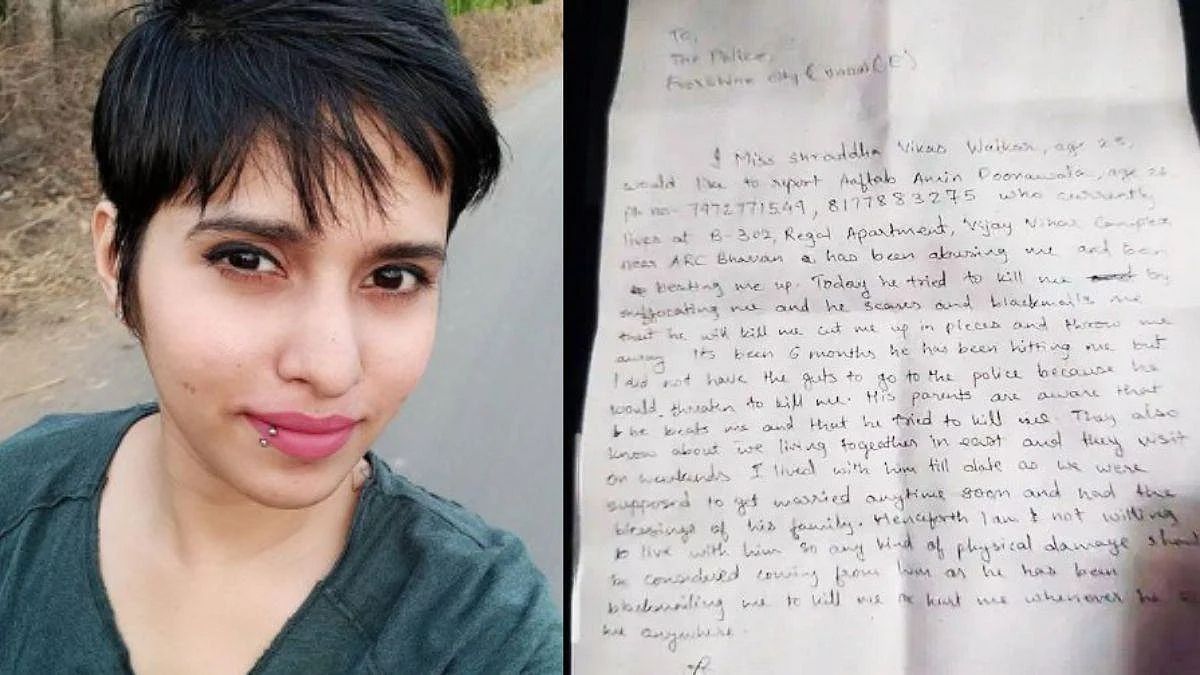 To,
The Police,
city
I Miss Shraddha Vikas Walkar, age 25,
would like to report Aaftab Amin Poonawala, age
ph no- 8177883275 who currently
lives at B-302, Regal Apartment, Vijay Vihar Complex
near ARC Bhavan has been abusing me and been
beating me up. Today he tried to kill me by
suffocating me and he scares and blackmails me
that he will kill me cut me up in pieces and throw me
away. Its been 6 months he has been hitting me but
I did not have the guts to go to the police because he
would threaten to kill me. His parents are aware that
he beats me and that he tried to kill me. They also
know about we living togeather in east and they visit
on weekends I lived with him till date as we were
supposed to get married anytime soon and had the
blessings of his family. Henceforth I am not willing
to live with him so any kind of physical damage should
be considered coming from him as he has been
blackmailing me to kill me or hurt me whenever he
me anywhere.